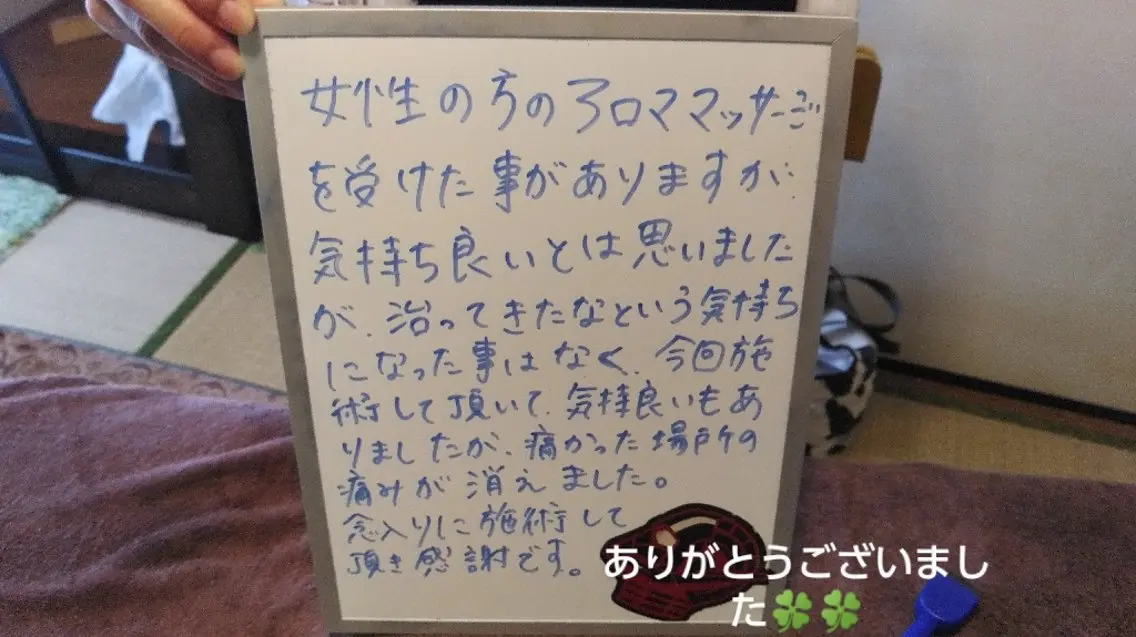 女性の方のアロママッサージ
を受けた事がありますが、
気持ち良いとは思いました
が、治ってきたなという気持ち
になった事はなく、今回施
術して頂いて、気持良いもあ
りましたが、痛かった場所の
痛みが消えました。
念入りに施術して
頂き感謝です。
ありがとうございまし
た🍀🍀